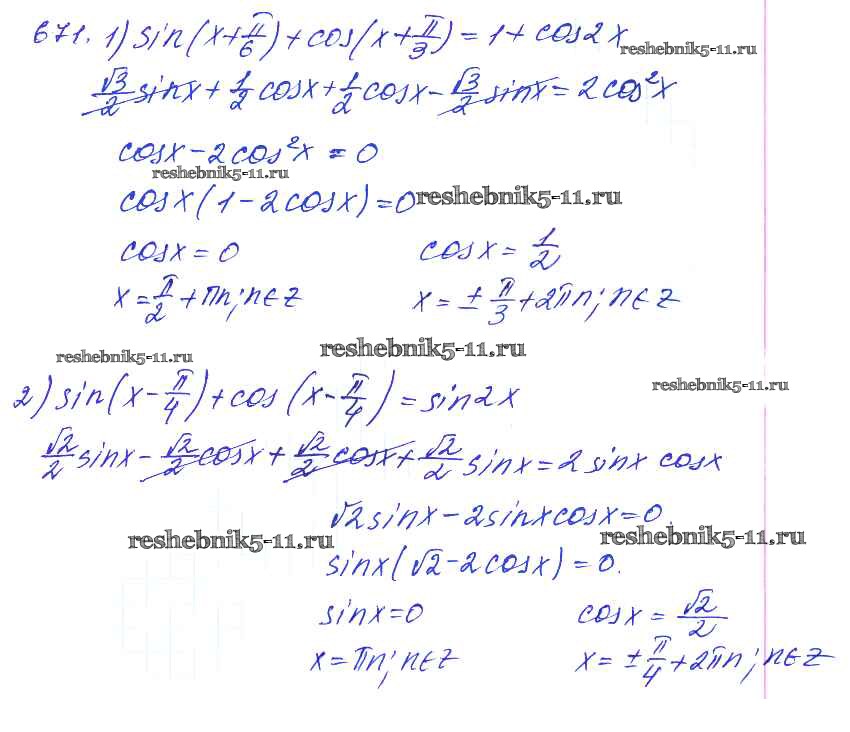 671. 1) sin(x+π/6)+cos(x+π/3)=1+cos2x
reshebnik5-11.ru
√3/2 sinx+1/2 cosx+1/2 cosx-√3/2 sinx=2cos²x
cosx-2cos²x=0
reshebnik5-11.ru
cosx(1-2cosx)=0 reshebnik5-11.ru
cosx=0 cosx=1/2
x=π/2+πn; n∈Z x=±π/3+2πn; n∈Z
reshebnik5-11.ru reshebnik5-11.ru
reshebnik5-11.ru
2) sin(x-π/4)+cos(x-π/4)=sin2x
√2/2 sinx-√2/2 cosx+√2/2 cosx+√2/2 sinx=2sinx cosx
√2sinx-2sinxcosx=0.
reshebnik5-11.ru reshebnik5-11.ru
sinx(√2-2cosx)=0.
sinx=0 cosx=√2/2
x=πn; n∈Z x=±π/4+2πn; n∈Z